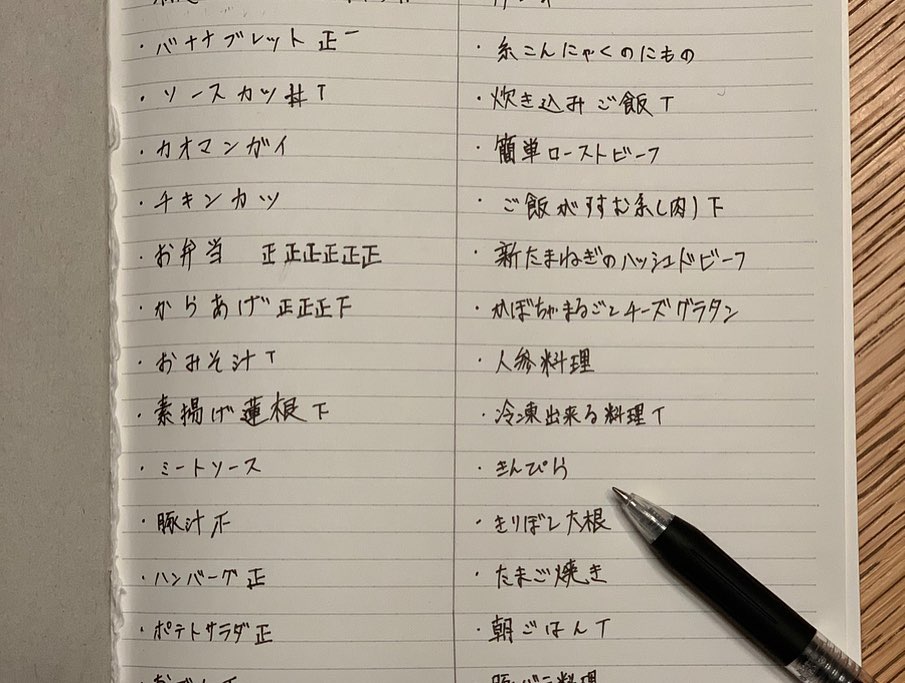 ・バナナブレット 正一
・ソースカツ丼 T
・カオマンガイ
・チキンカツ
・お弁当 正正正正正正
・からあげ 正正正下
・おみそ汁 T
・素揚げ蓮根 下
・ミートソース
・豚汁 下
・ハンバーグ 正
・ポテトサラダ 正
・糸こんにゃくのにもの
・炊き込みご飯 T
・簡単ローストビーフ
・ご飯がすすむ系(肉) 下
・新たまねぎのハッシュドビーフ
・かぼちゃまるごとチーズグラタン
・人参料理
・冷凍出来る料理 T
・きんぴら
・きりぼし大根
・たまご焼き
・朝ごはん T
・豚バラ料理